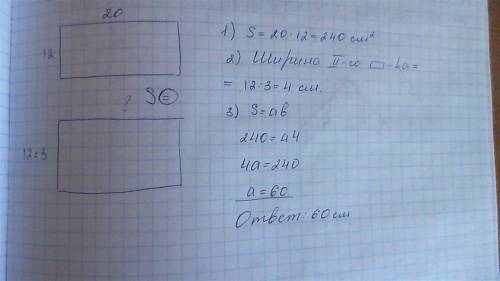 20
12
? S =
12:3
1) S = 20 · 12 = 240 см²
2) Ширина II-го □ - ка =
= 12 : 3 = 4 см.
3) S = ab
240 = a4
4a = 240
a = 60
Ответ: 60 см